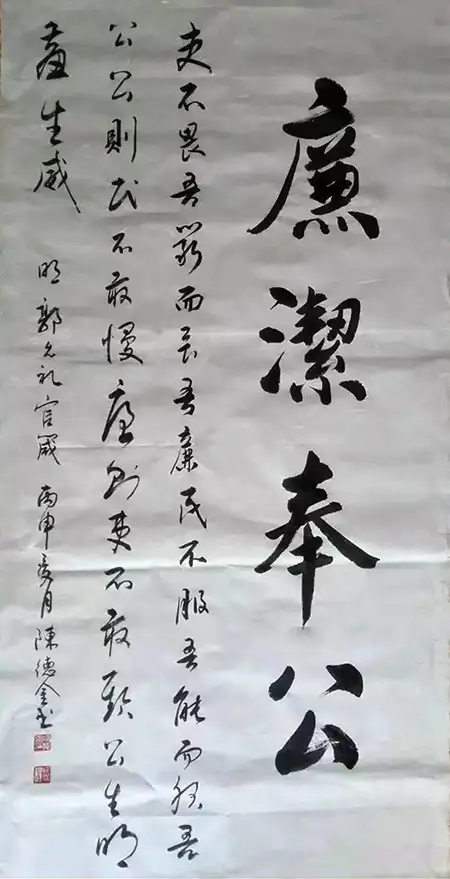 廉潔奉公
吏不畏吾嚴而畏吾廉民不服吾能而服吾
公公則民不敢慢廉則吏不敢欺公生明
廉生威 明郭允礼官箴 丙申夏月陳德金书